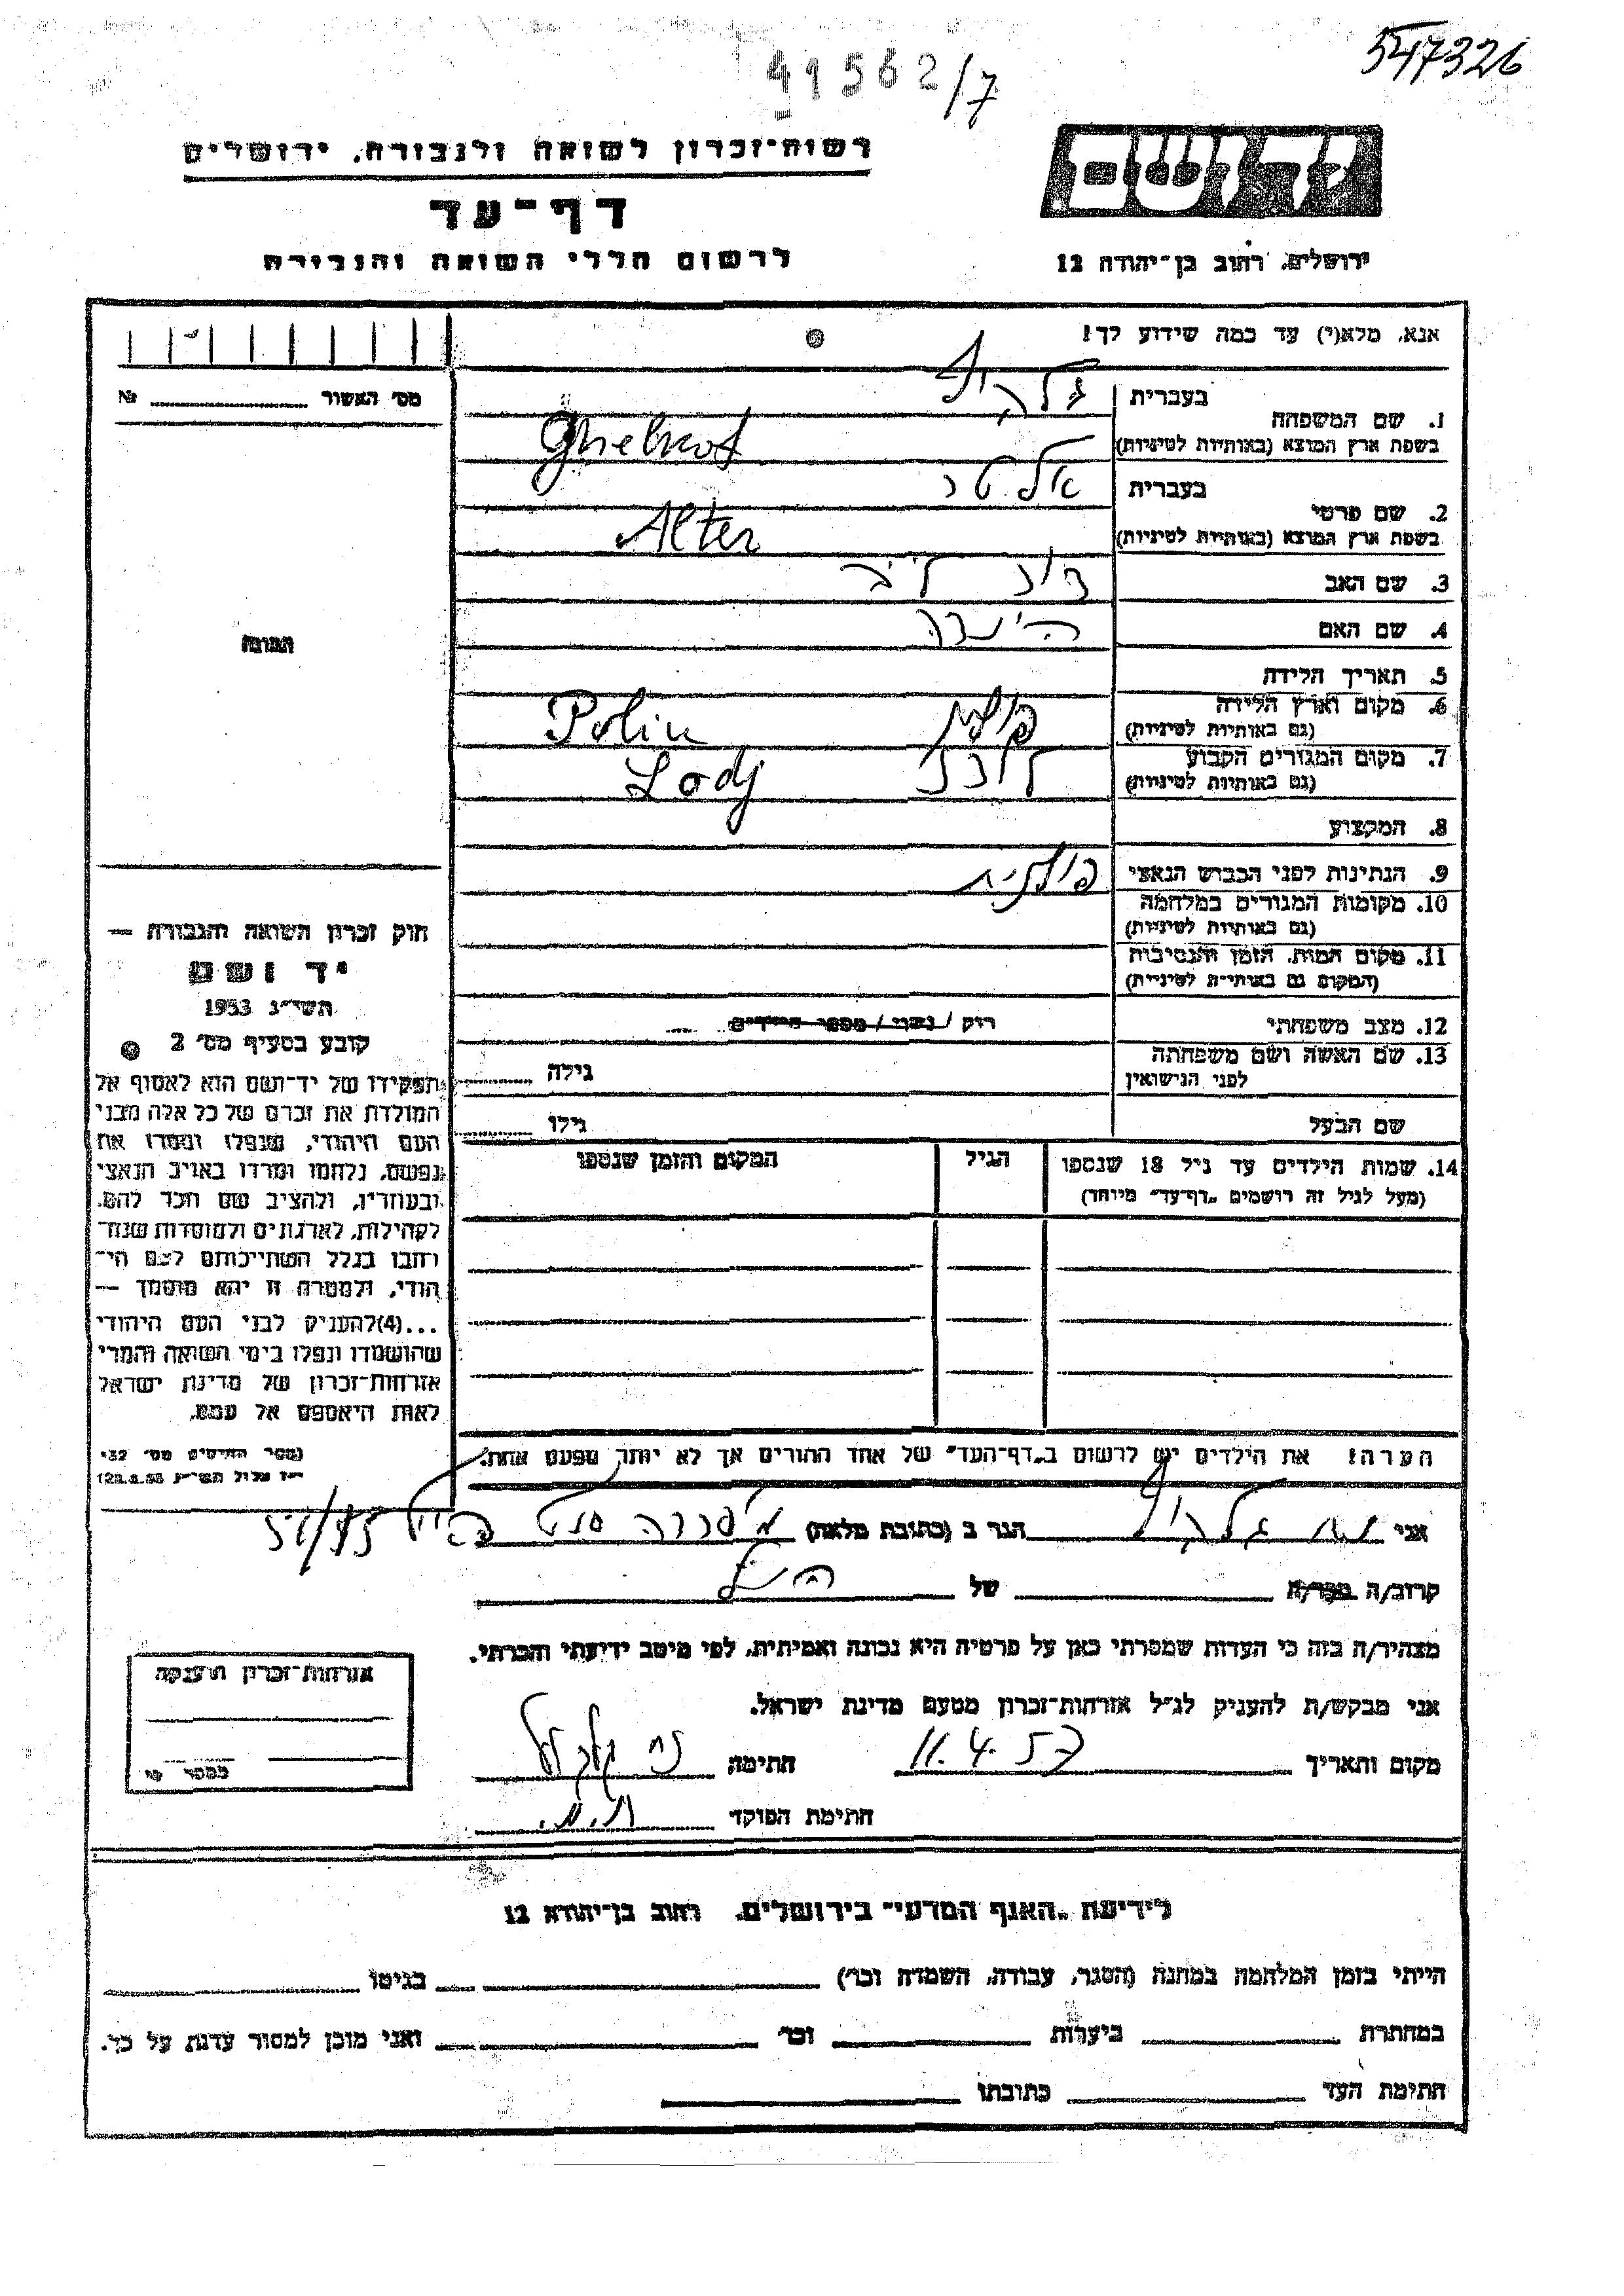 547326
41562/7
יד ושם
רשות־זכרון לשואה ולגבורה, ירושלים
דף־עד
לרשום חללי השואה והגבורה
ירושלים, רחוב בן־יהודה 12
אנא, מלא(י) עד כמה שידוע לך!
מס׳ האשור № 
1. שם המשפחה
בעברית
בשפת ארץ המוצא (באותיות לטיניות)
2. שם פרטי
בעברית אלטר
בשפת ארץ המוצא (באותיות לטיניות) Alter
3. שם האב
4. שם האם הינדה
5. תאריך הלידה
6. מקום וארץ הלידה פולין Polin
(גם באותיות לטיניות)
7. מקום המגורים הקבוע לודז Lodj
(גם באותיות לטיניות)
8. המקצוע
9. הנתינות לפני הכבוש הנאצי פולנית
10. מקומות המגורים במלחמה
(גם באותיות לטיניות)
11. מקום המות, הזמן והנסיבות
(המקום גם באותיות לטיניות)
12. מצב משפחתי רוק / נשוי / מספר הילדים
13. שם האשה ושם משפחתה
לפני הנישואין גילה
שם הבעל גילו
14. שמות הילדים עד גיל 18 שנספו הגיל המקום והזמן שנספו
(מעל לגיל זה רושמים „דף־עד״ מיוחד)
התמונה
חוק זכרון השואה והגבורה —
יד ושם
תשי״ג 1953
קובע בסעיף מס׳ 2
תפקידו של יד־ושם הוא לאסוף אל
המולדת את זכרם של כל אלה מבני
העם היהודי, שנפלו ומסרו את
נפשם, נלחמו ומרדו באויב הנאצי
ובעוזריו, ולהציב שם וזכר להם,
לקהילות, לארגונים ולמוסדות שנח־
רבו בגלל השתייכותם לעם הי־
הודי, ולמטרה זו יהא מוסמך —
...(4)להעניק לבני העם היהודי
שהושמדו ונפלו בימי השואה והמרי
אזרחות־זכרון של מדינת ישראל
לאות היאספם אל עמם.
(ספר החוקים מס׳ 132
י״ז אלול תשי״ג 28.8.53)
הערה! את הילדים יש לרשום ב„דף־העד״ של אחד ההורים אך לא יותר מפעם אחת.
אני הגר ב (כתובת מלאה) 51/75
קרוב/ה מכר/ה של
מצהיר/ה בזה כי העדות שמסרתי כאן על פרטיה היא נכונה ואמיתית, לפי מיטב ידיעתי והכרתי.
אני מבקש/ת להעניק לנ״ל אזרחות־זכרון מטעם מדינת ישראל.
מקום ותאריך 11.4.57 חתימה
חתימת הפוקד
אזרחות־זכרון הוענקה
במספר
לידיעת „האגף המדעי״ בירושלים, רחוב בן־יהודה 12
הייתי בזמן המלחמה במחנה (הסגר, עבודה, השמדה וכו׳) בגיטו
במחתרת ביערות וכו׳ ואני מוכן למסור עדות על כך.
חתימת העד כתובתו